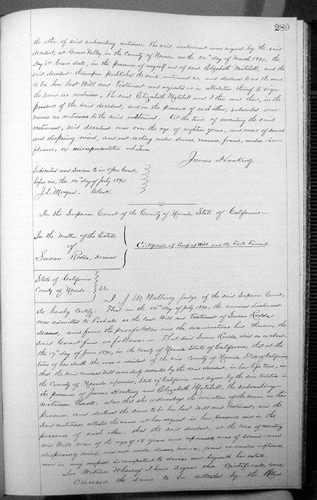 289
the other of said subscribing witnesses. The said instrument was signed by the said
decedent, at Grass Valley in the County of Nevada on the 24th day of March 1890, the
day it bears date, in the presence of myself and of said Elizabeth Mitchell, and the
said decedent thereupon published the said instrument as, and declared to us the same
to be her last Will and Testament and requested us in attestation thereof to sign
the same as witnesses. The said Elizabeth Mitchell and I then and there, in the
presence of the said decedent, and in the presence of each other, subscribed our
names as witnesses to the said instrument. At the time of executing the said
instrument, said decedent was over the age of eighteen years, and was of sound
and disposing mind, and not acting under duress, menace, fraud, undue in-
fluence, or misrepresentation whatever.
James Hosking
Subscribed and Sworn to in open Court,
before me, this day of July 1890
J. L. Morgan. Clerk.
In the Superior Court of the County of Nevada State of California
In the Matter of the Estate
of
Susan Rodda, deceased
Certificate of Proof of Will and the Facts Found.
State of California
County of Nevada } SS.
I, J. M. Walling Judge of the said Superior Court,
do hereby Certify: That on the day of July 1890, the annexed Instrument
was admitted to Probate as the last Will and Testament of Susan Rodda
deceased, and from the proofs taken and the examinations had therein the
said Court finds as follows: That said Susan Rodda died on or about
the day of June 1890, in the County of Nevada State of California, that at the
time of her death she was a resident of the said County of Nevada State of California,
that the said annexed Will was duly executed by the said decedent, in her life time, in
the County of Nevada aforesaid, State of California and signed by the said testatrix in
the presence of James Hosking and Elizabeth Mitchell, the subscribing
witnesses thereto. That she acknowledge the execution of the same in their
presence and declared the same to be her last Will and Testament and the
said witnesses attested the same at her request in her presence and in the
presence of each other that the said decedent, at the time of executing
said Will, was of the age of 18 years and upwards was of sound and
disposing mind, and not under duress, menace, fraud or undue influence,
nor in any respect incompetent to devise and bequeath her estate.
In Witness Whereof, I have signed this Certificate, and
Caused the same to be attested by the Clerk